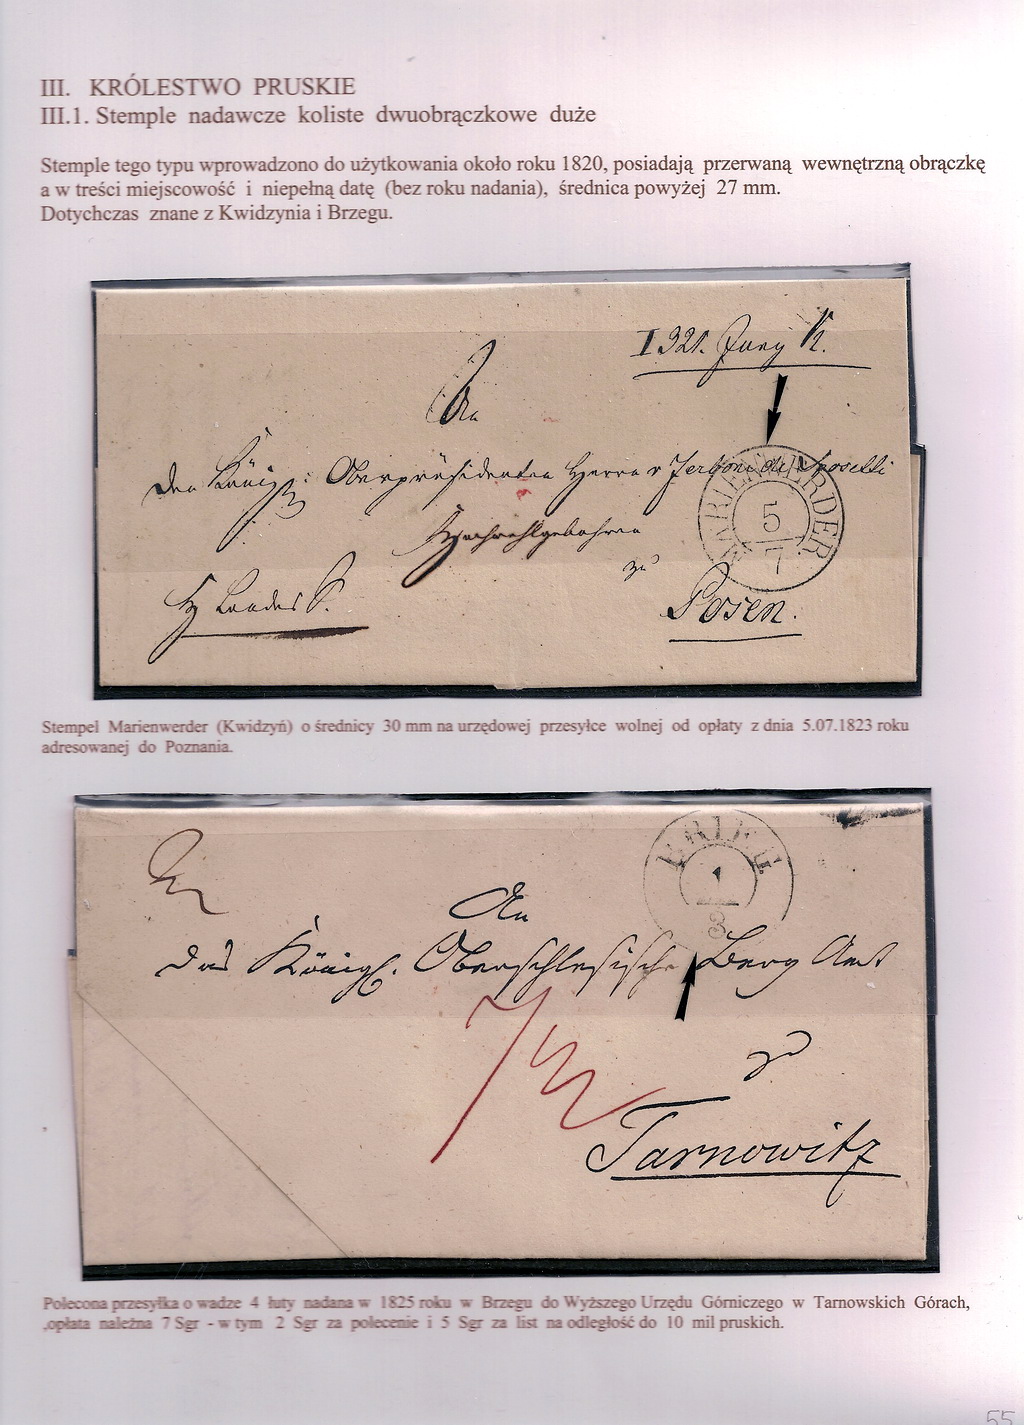 III. KRÓLESTWO PRUSKIE
III.1. Stemple nadawcze koliste dwuobrączkowe duże
Stemple tego typu wprowadzono do użytkowania około roku 1820, posiadają przerwaną wewnętrzną obrączkę
a w treści miejscowość i niepełną datę (bez roku nadania), średnica powyżej 27 mm.
Dotychczas znane z Kwidzynia i Brzegu.
I 321.
An
Den Königl: Oberpräsidenten Herrn v Zerboni di Sposetti
Hochwohlgebohren
zu
Posen.
MARIENWERDER
5
7
Stempel Marienwerder (Kwidzyń) o średnicy 30 mm na urzędowej przesyłce wolnej od opłaty z dnia 5.07.1823 roku
adresowanej do Poznania.
BRIEG
1
3
An
das Königl. Oberschlesische Berg Amt
zu
7
Tarnowitz
Polecona przesyłka o wadze 4 łuty nadana w 1825 roku w Brzegu do Wyższego Urzędu Górniczego w Tarnowskich Górach,
,opłata należna 7 Sgr - w tym 2 Sgr za polecenie i 5 Sgr za list na odległość do 10 mil pruskich.
55